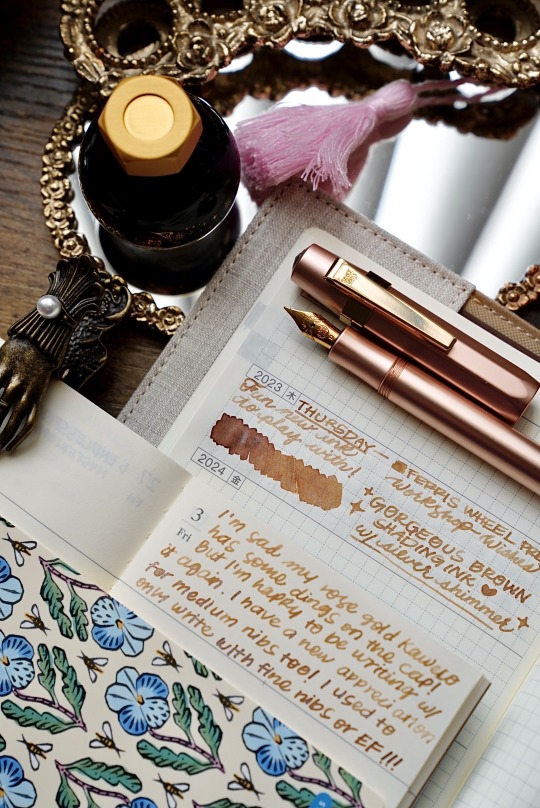 2023 木 THURSDAY -
Fun new ink
today with!
FERRIS WHEEL PRE
workshop
GORGEOUS BROWN
SHADING INK
w/ silver shimmer
2024 金
3
Fri
I'm sad my rose gold Kaweco
has some dings on the cap!
But I'm happy to be writing w/
it again. I have a new appreciation
for medium nibs too! I used to
only write with fine nibs or EF!!!